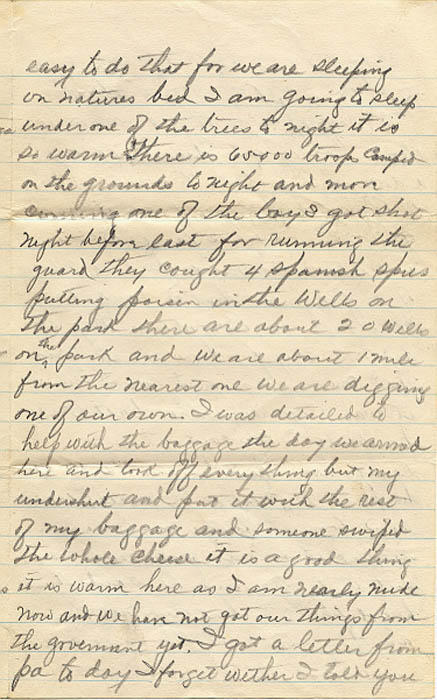 easy to do that for we are sleeping
on natures bed I am going to sleep
under one of the trees to night it is
so warm there is 65000 troops camped
on the grounds to night and more
coming one of the boys got shot
night before last for running the
guard they cought 4 spanish spies
putting poisin in the Wells on
the park there are about 20 Wells
on the park and we are about 1 mile
from the nearest one we are digging
one of our own. I was detailed to
help with the baggage the day we arrived
here and took off every thing but my
undershirt and put it with the rest
of my baggage and someone swiped
the whole cheese it is a good thing
it is warm here as I am nearly nude
now and we have not got our things from
the goverment yet. I got a letter from
pa to day I forget wether I told you